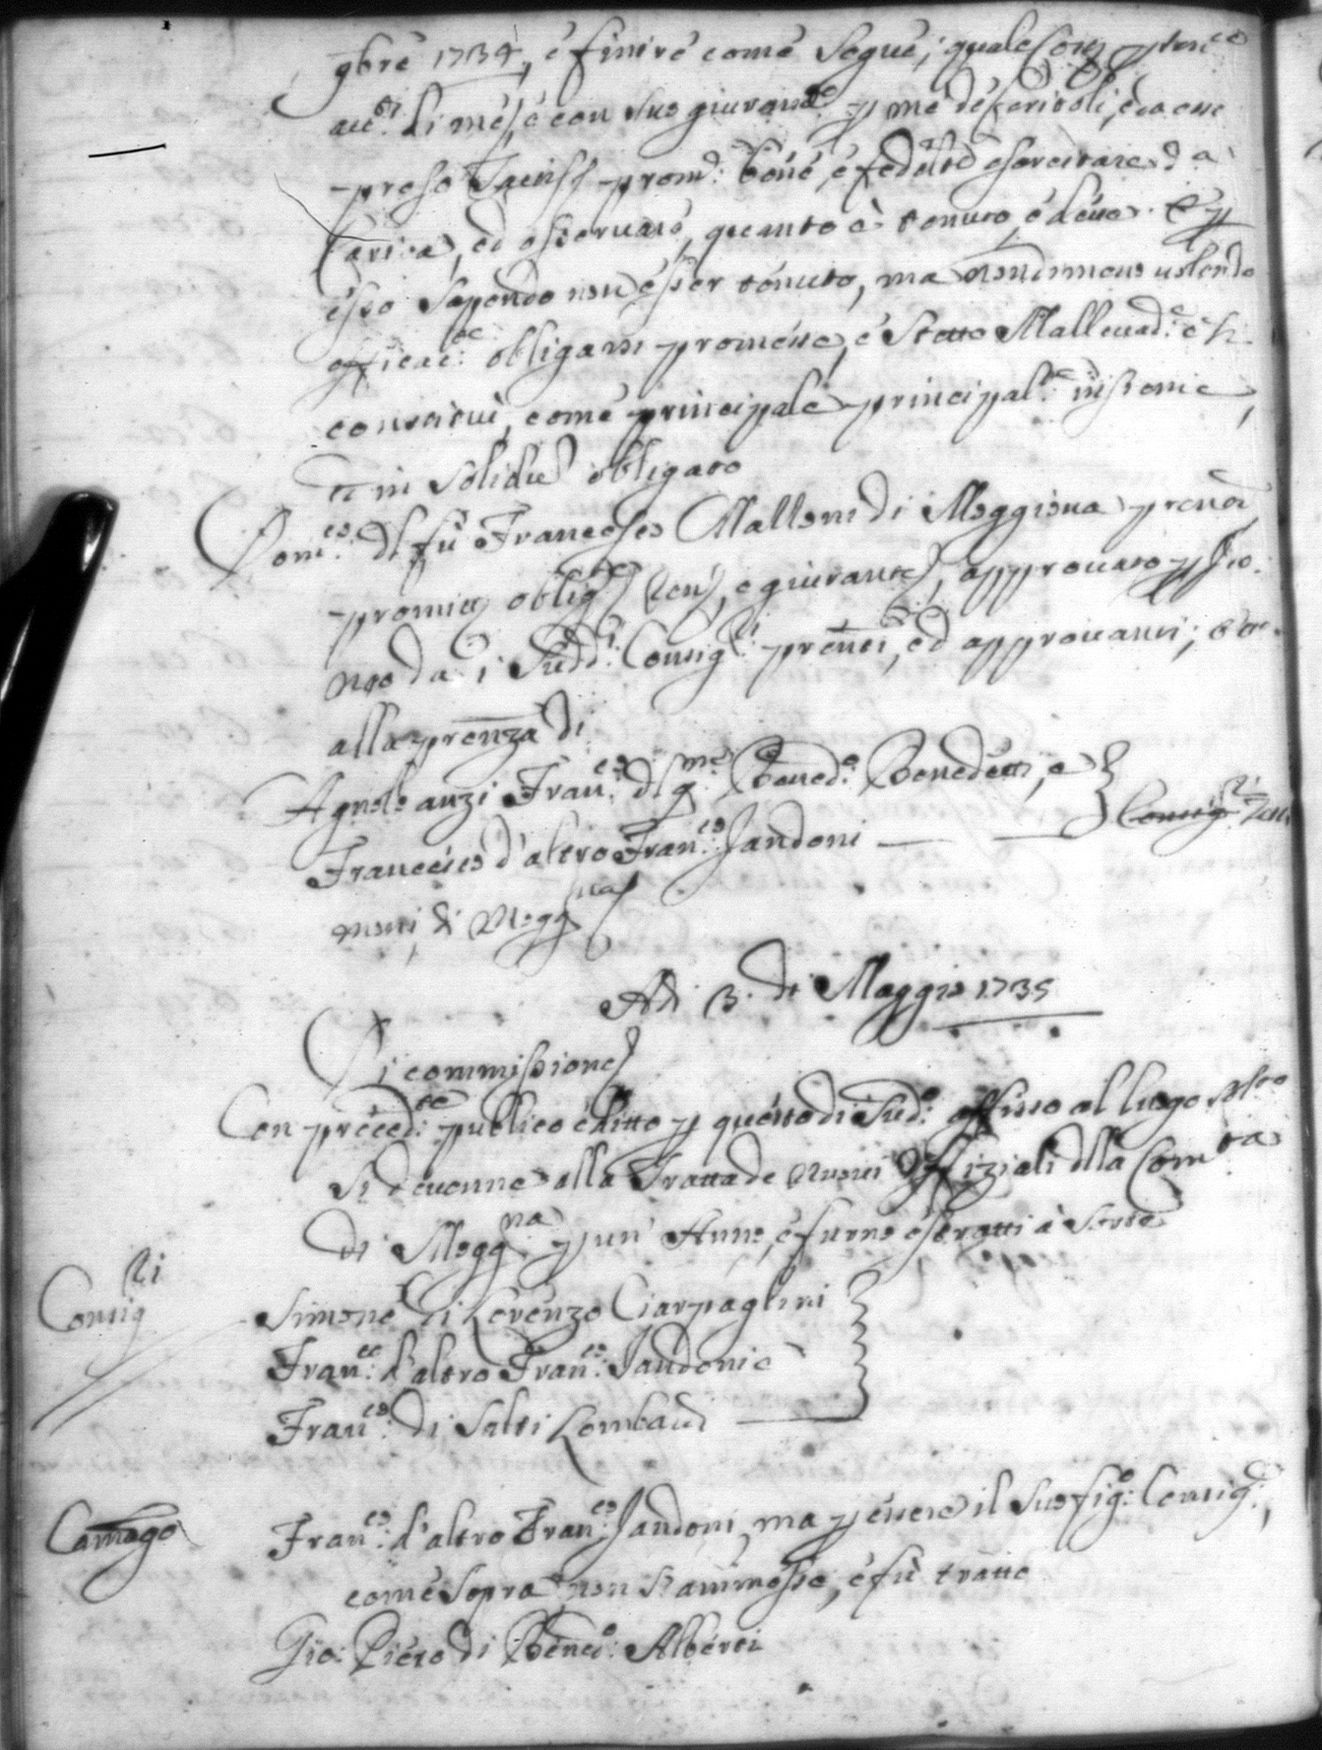 9bre 1734, e finire come segue; quale
auᵗⁱ di me, e con suo giuramᵗᵒ p me deferitoli, e da esse
preso promᵈ: bene, e fedelᵗᵉ esercitare dᵃ
Carica, ed osservare, quanto è tenuto, e deve. E p
esso sapendo non esser tenuto, ma nondimeno volendo
efficacᵗᵉ: obligarsi promesse, e stette Mallevadᵉ: e si
constituì, come principale principalᵗᵉ: insieme,
et in solidū obligato
Domᶜᵒ: dl fù Francesco Malloni di Moggiona prēnti
approuato p Sio:
neo da i Sudᵈⁱ: Consigʳⁱ: prēnti, ed approuanti;
alla prēnza di
Agnolo anzi Franᶜᵒ: dl qᵐ: Benedᵒ: Benedetti, e
Francesco d'altro Franᶜᵒ: Jandoni — — Consigʳⁱ Tesᵗⁱ
moni di Moggⁿᵃ
Adi 3. di Maggio 1735
Di commissione
Con precedᵗᵉ: publico editto p questo di Sudᵒ: affisso al luogo solᵗᵒ
si devenne alla Tratta de nuovi Offiziali dlla Comᵗᵃ
di Moggⁿᵃ p un Anno, e furno estratti à sorte
Consigʳⁱ
Simone di Lorenzo Ciarpaglini
Franᶜᵒ: d'altro Franᶜᵒ: Jandoni e
Franᶜᵒ: di Salvi Lombardi
Camāgo
Franᶜᵒ: d'altro Franᶜᵒ: Jandoni, ma p essere il suo figᵒ: Consigʳᵉ:,
come sopra non si ammesse, e fù tratto
Gio: Piero di Benedᵒ: Alberti